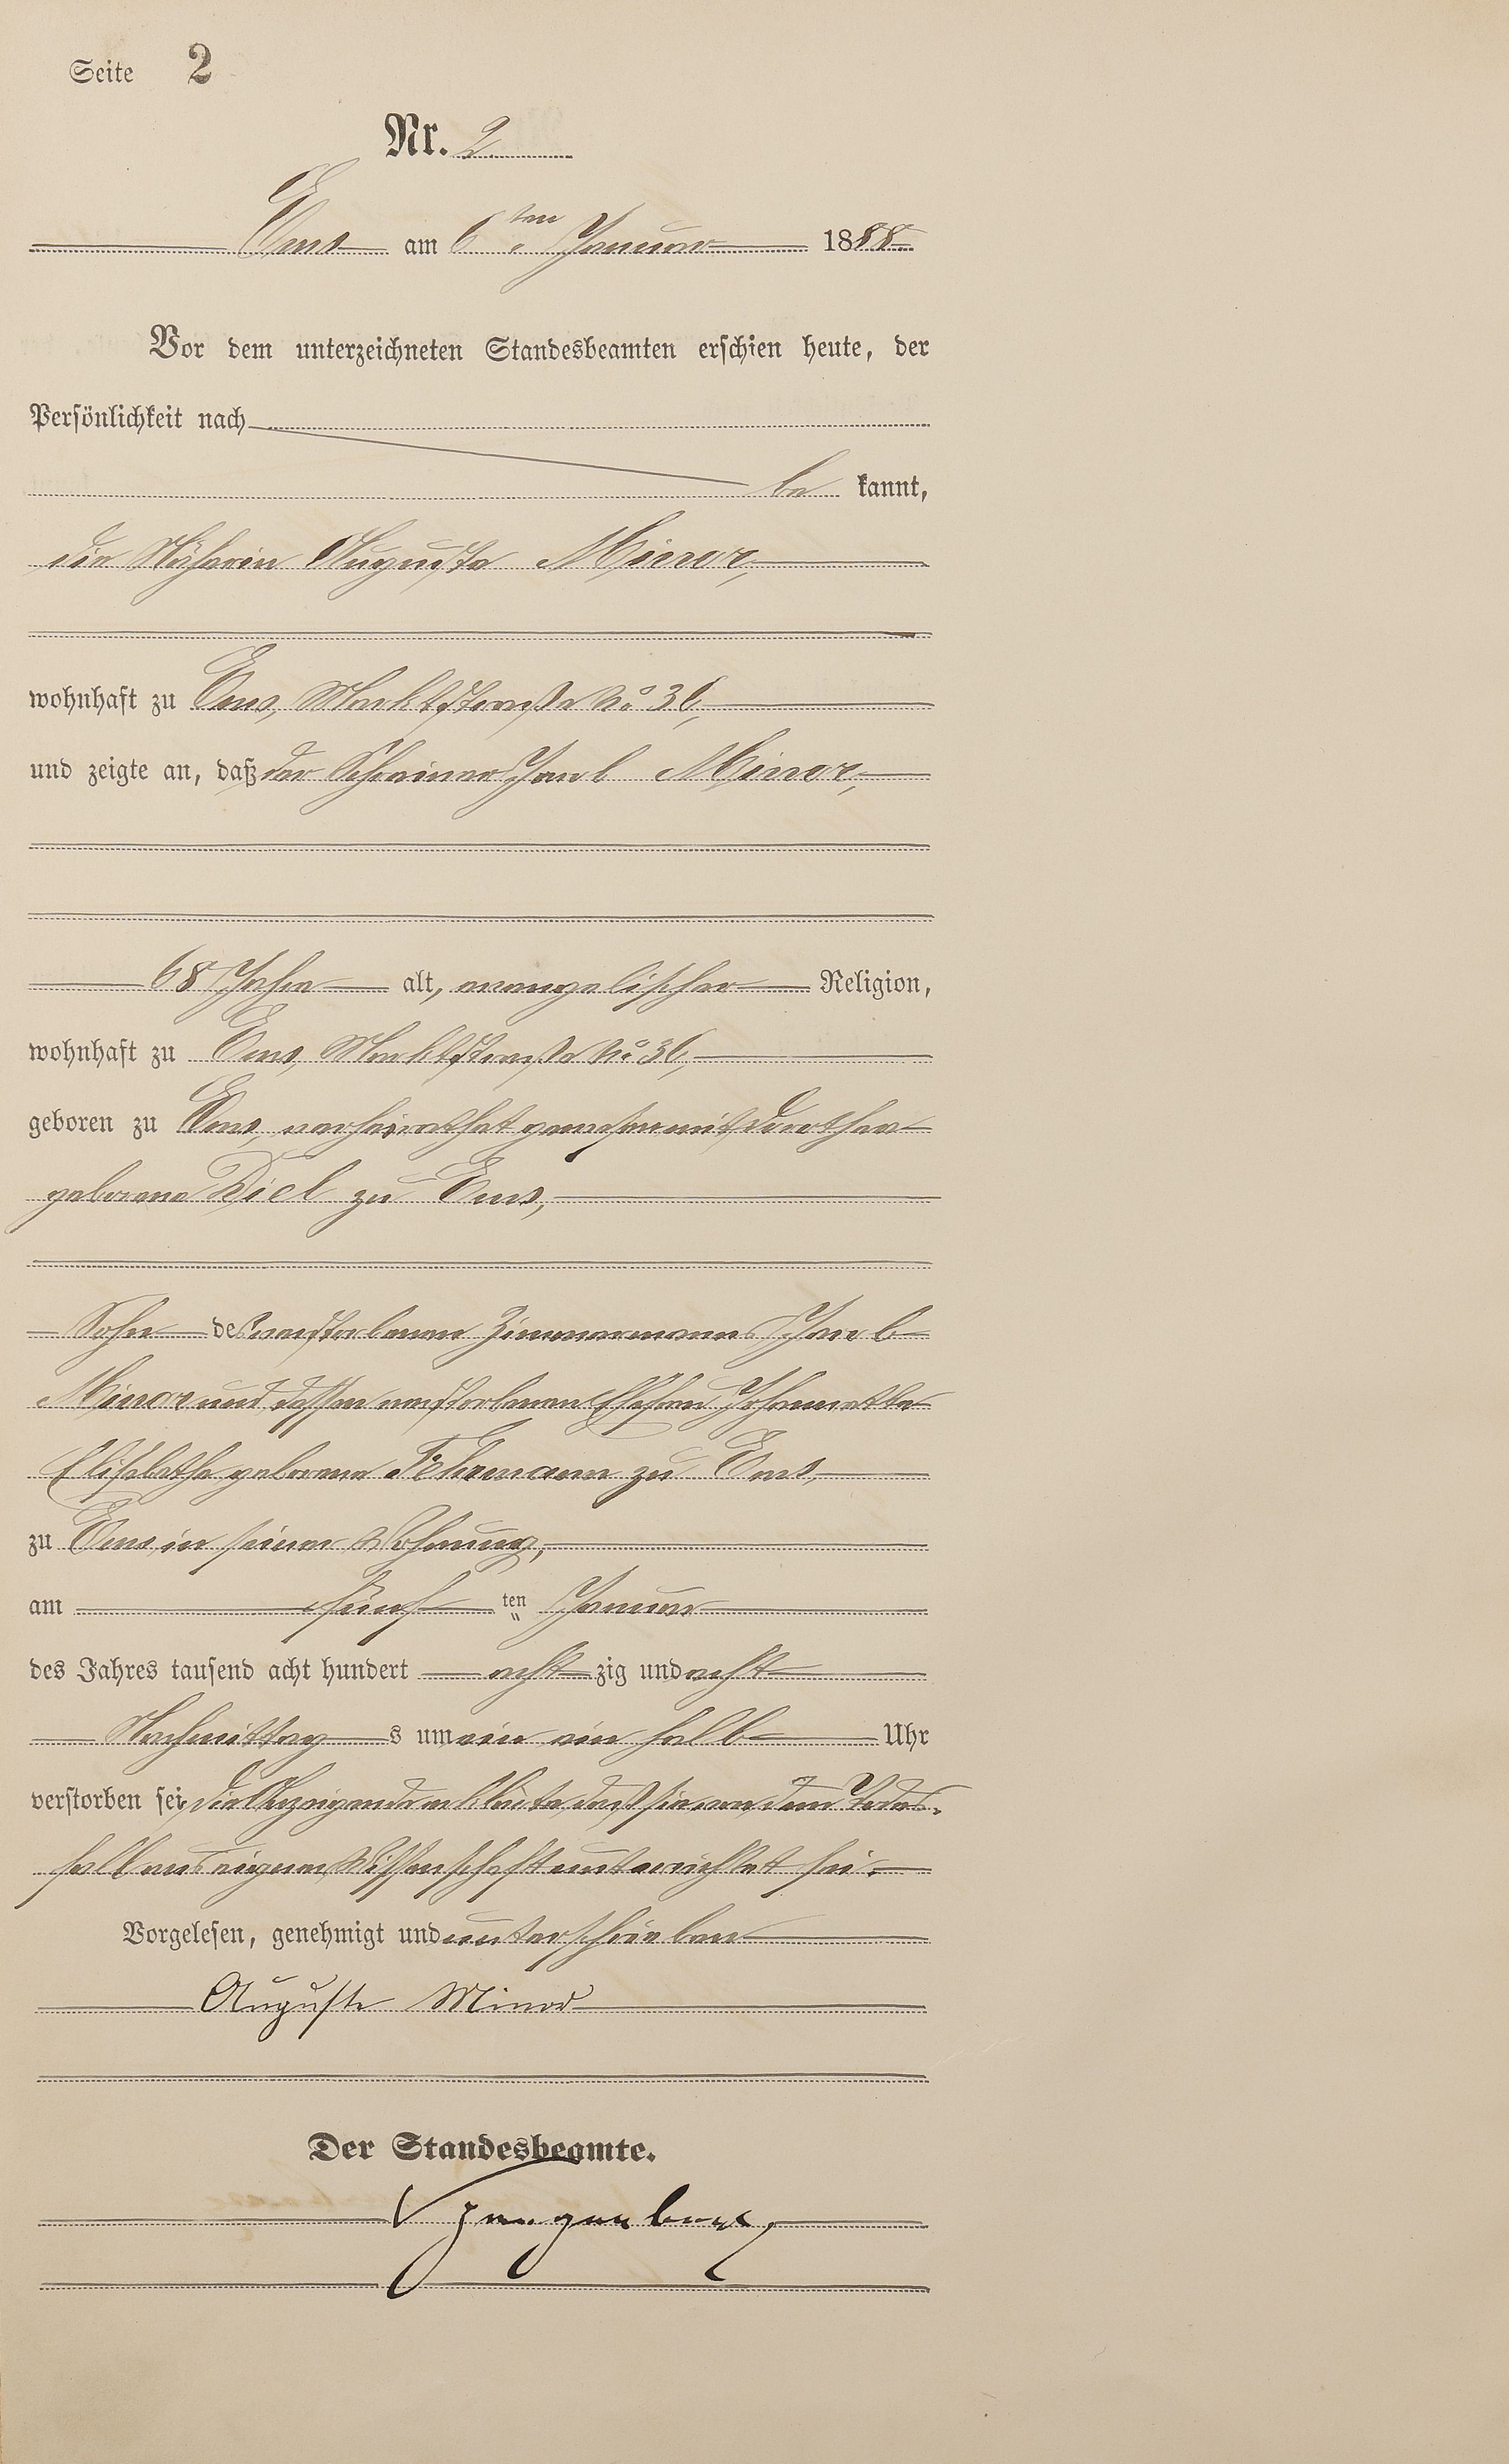 Seite 2
Nr. 2.
Ems am 6ten Januar 1888.
Vor dem unterzeichneten Standesbeamten erschien heute, der
Persönlichkeit nach
be kannt,
die Näherin Auguste Minor,
wohnhaft zu Ems, Marktstraße No 36,
und zeigte an, daß der Schreiner Jacob Minor,
68 Jahre alt, evangelischer Religion,
wohnhaft zu Ems, Marktstraße No 36,
geboren zu Ems, verheirathet gewesen mit Dorothea
geborene Diel zu Ems,
Sohn des verstorbenen Zimmermanns Jacob
Minor und dessen verstorbenen Ehefrau Johannette
Elisabetha geborene zu Ems,
zu Ems in seiner Wohnung,
am fünf ten Januar
des Jahres tausend acht hundert acht zig und acht
Nachmittag s um ein ein halb Uhr
verstorben sei, die Anzeigende erklärte, daß sie von dem Todes-
fall aus eigener Wissenschaft unterrichtet sei.
Vorgelesen, genehmigt und unterschrieben
Auguste Minor
Der Standesbeamte.